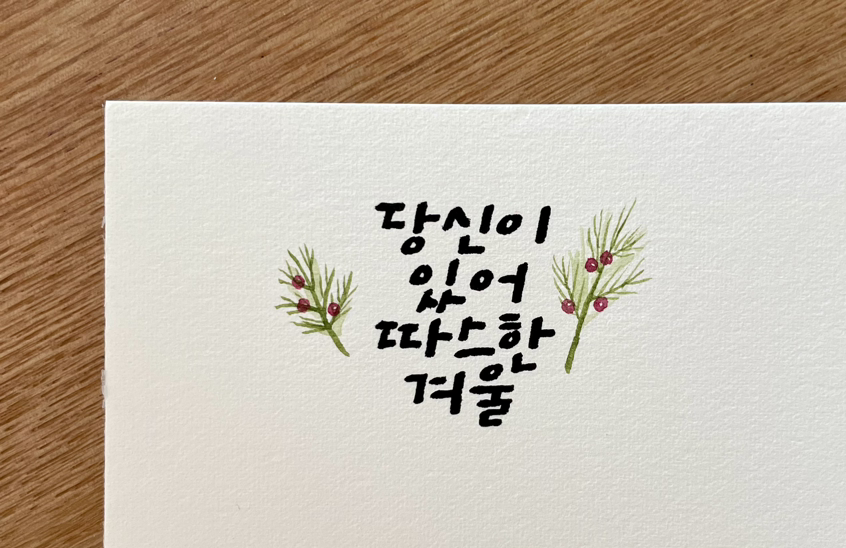 당신이
있어
따스한
겨울